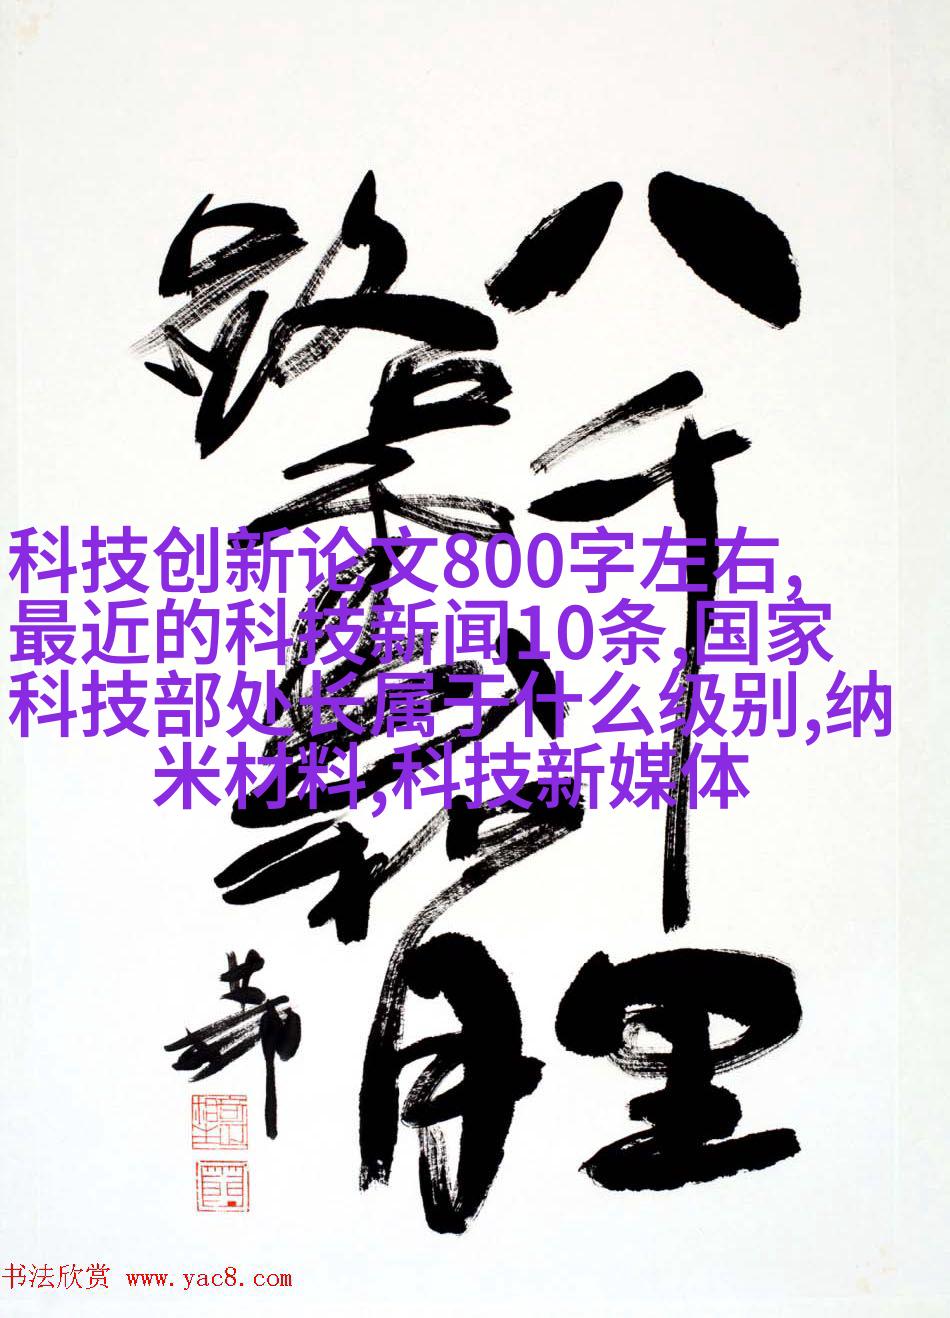 八千里
路云和月
科技创新论文800字左右,
最近的科技新闻10条,国家
科技部处长属于什么级别,纳
米材料,科技新媒体
书法欣赏 www.yac8.com